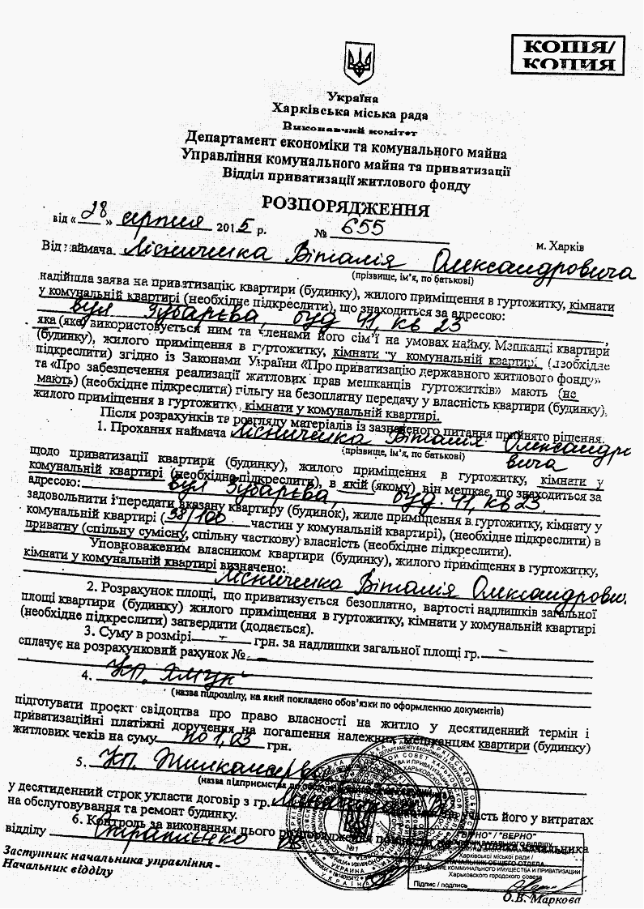 КОПІЯ/
КОПИЯ
Україна
Харківська міська рада
Виконавчий комітет
Департамент економіки та комунального майна
Управління комунального майна та приватизації
Відділ приватизації житлового фонду
РОЗПОРЯДЖЕННЯ
від « 28 » серпня 2015 р. № 655 м. Харків
Від наймача Лісниченка Віталія Олександровича
(прізвище, ім'я, по батькові)
надійшла заява на приватизацію квартири (будинку), жилого приміщення в гуртожитку, кімнати
у комунальній квартирі (необхідне підкреслити), що знаходиться за адресою:
вул Зубарєва буд 41, кв 23
яка (яке) використовується ним та членами його сім'ї на умовах найму. Мешканці квартири
(будинку), жилого приміщення в гуртожитку, кімнати у комунальній квартирі (необхідне
підкреслити) згідно із Законами України «Про приватизацію державного житлового фонду»
та «Про забезпечення реалізації житлових прав мешканців гуртожитків» мають (не
мають) (необхідне підкреслити) пільгу на безоплатну передачу у власність квартири (будинку),
жилого приміщення в гуртожитку, кімнати у комунальній квартирі.
Після розрахунків та розгляду матеріалів із зазначеного питання прийнято рішення.
1. Прохання наймача Лісниченка Віталія Олександро
вича
(прізвище, ім'я, по батькові)
щодо приватизації квартири (будинку), жилого приміщення в гуртожитку, кімнати у
комунальній квартирі (необхідне підкреслити), в якій (якому) він мешкає, що знаходиться за
адресою: вул Зубарєва буд. 41, кв 23
задовольнити і передати вказану квартиру (будинок), жиле приміщення в гуртожитку, кімнату у
комунальній квартирі (38/100 частин у комунальній квартирі), (необхідне підкреслити) в
приватну (спільну сумісну, спільну часткову) власність (необхідне підкреслити).
Уповноваженим власником квартири (будинку), жилого приміщення в гуртожитку,
кімнати у комунальній квартирі визначено:
Лісниченка Віталія Олександрови
2. Розрахунок площі, що приватизується безоплатно, вартості надлишків загальної
площі квартири (будинку) жилого приміщення в гуртожитку, кімнати у комунальній квартирі
(необхідне підкреслити) затвердити (додається).
3. Суму в розмірі - грн. за надлишки загальної площі гр.
сплачує на розрахунковий рахунок №
4.
(назва підрозділу, на який покладено обов'язки по оформленню документів)
підготувати проект свідоцтва про право власності на житло у десятиденний термін і
приватизаційні платіжні доручення на погашення належних мешканцям квартири (будинку)
житлових чеків на суму по 1,03 грн.
5. КП Жилкомсервіс
(назва підприємства
у десятиденний строк укласти договір з гр. участь його у витратах
на обслуговування та ремонт будинку.
6. Контроль за виконанням цього розпорядження
відділу
"ВІРНО" / "ВЕРНО"
Харківської міської ради /
НАЧАЛЬНИК ОБЩЕГО ОТДЕЛА
КОММУНАЛЬНОГО ИМУЩЕСТВА И ПРИВАТИЗАЦИИ
Харьковского городского совета
Підпис / подпись
О.В. Маркова
Заступник начальника управління -
Начальник відділу